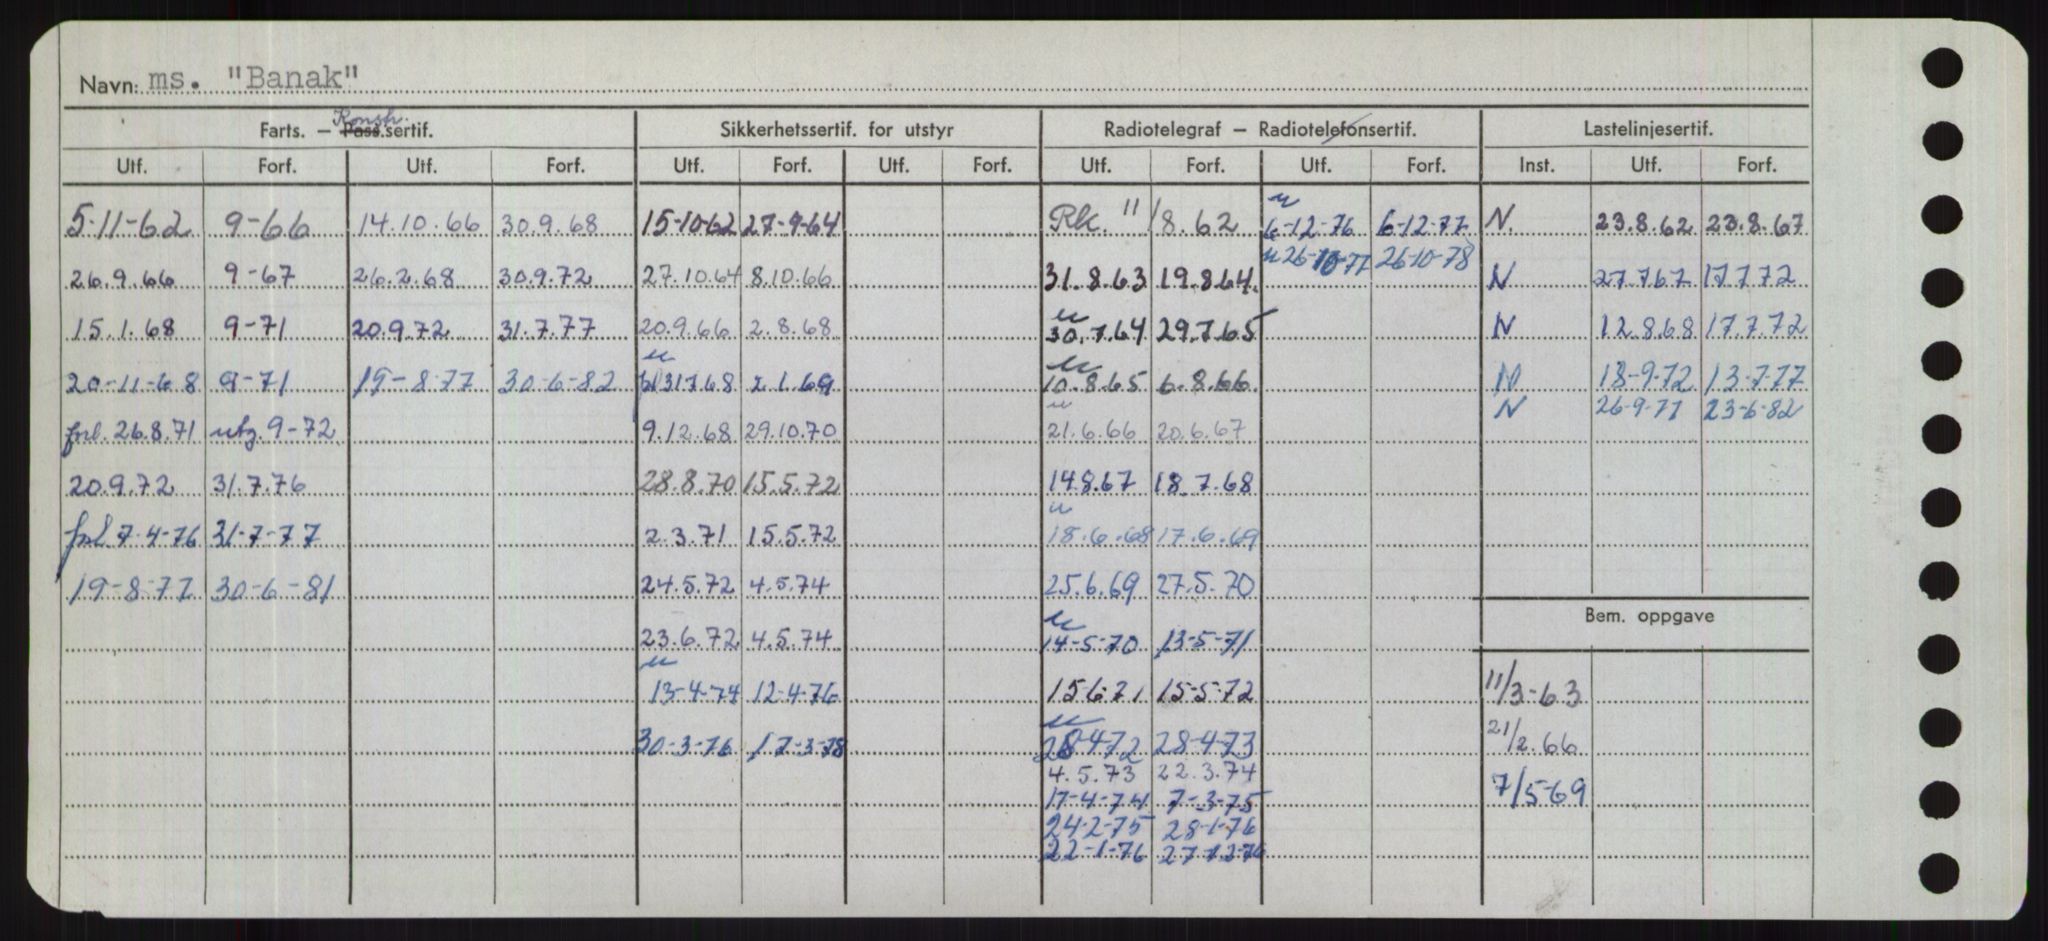 Navn: ms. "Banak"
Farts. — Konstr. Pass.sertif. Sikkerhetssertif. for utstyr Radiotelegraf — Radiotelefonsertif. Lastelinjesertif.
Utf. Forf. Utf. Forf. Utf. Forf. Utf. Forf. Utf. Forf. Utf. Forf. Inst. Utf. Forf.
5-11-62 9-66 14.10.66 30.9.68 15-10-62 27-9-64 Rk. 11/8.62 u 6-12-76 6-12-77 N. 23.8.62 23.8.67
u 26-10-77 26-10-78
26.9.66 9-67 26.2.68 30.9.72 27.10.64 8.10.66 31.8.63 19.8.64. N 27.7.67 17.7.72
15.1.68 9-71 20.9.72 31.7.77 20.9.66 2.8.68 u 30.7.64 29.7.65 N 12.8.68 17.7.72
20-11-68 9-71 19-8-77 30-6-82 u frl 31.7.68 2.1.69 u 10.8.65 6.8.66 N 13-9-72 13-7-77
N 26-9-77 23-6-82
forl. 26.8.71 utg. 9-72 9.12.68 29.10.70 u 21.6.66 20.6.67
20.9.72 31.7.76 28.8.70 15.5.72 14.8.67 18.7.68
forl. 7-4-76 31-7-77 2.3.71 15.5.72 u 18.6.68 17.6.69
19-8-77 30-6-81 24.5.72 4.5.74 25.6.69 27.5.70
Bem. oppgave
23.6.72 4.5.74 u 14-5-70 13-5-71
u 13-4-74 12-4-76 15.6.71 15-5-72 11/3-63
30-3-76 17-3-78 u 28-4-72 28-4-73 21/2.66
4.5.73 22.3.74
17-4-74 7-3-75 7/5-69
24-2-75 28-1-76
22-1-76 27-12-76